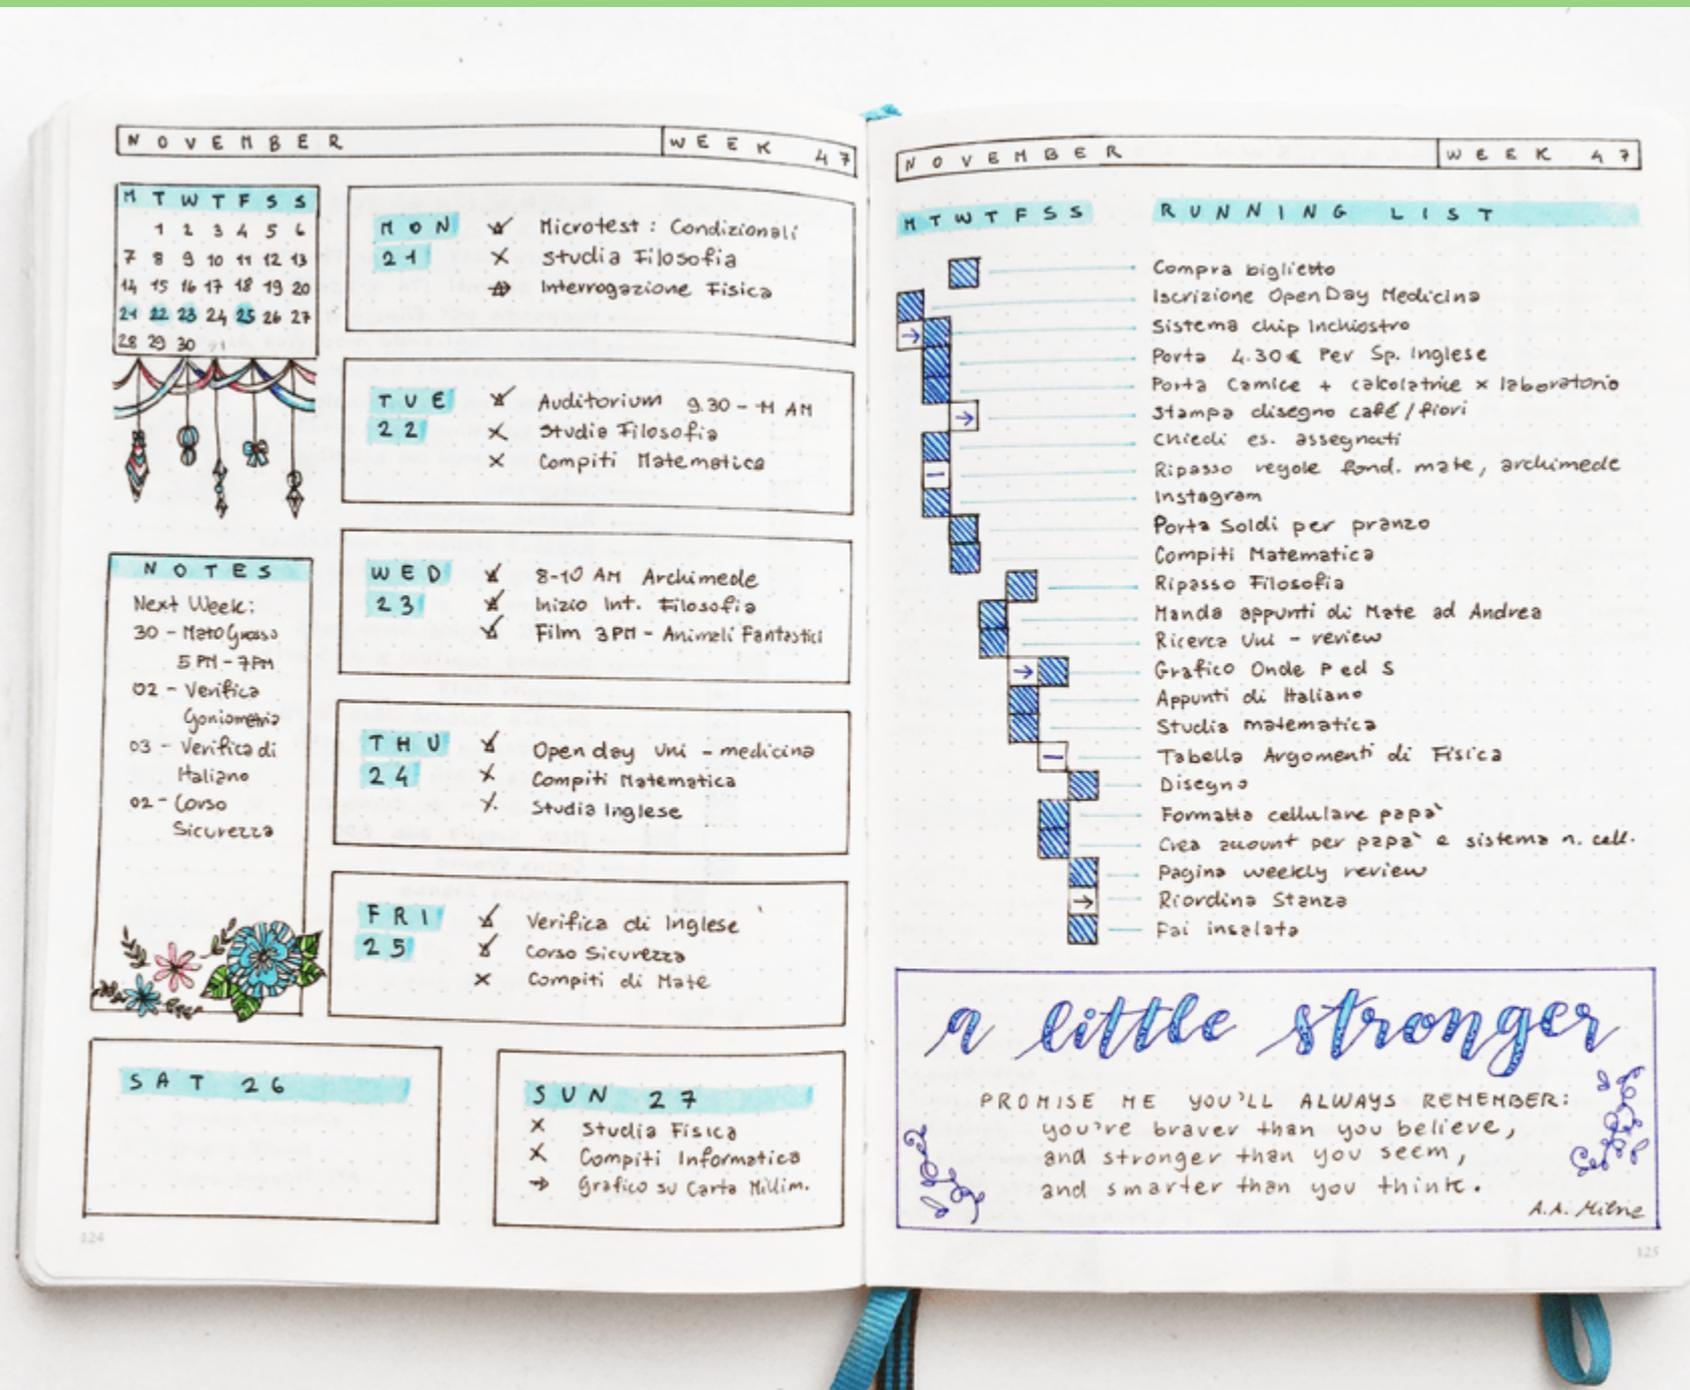 NOVEMBER WEEK 47
M T W T F S S
1 2 3 4 5 6
7 8 9 10 11 12 13
14 15 16 17 18 19 20
21 22 23 24 25 26 27
28 29 30
MON Microtest: Condizionali
21 Studia Filosofia
Interrogazione Fisica
TUE Auditorium 9.30 - 11 AM
22 Studia Filosofia
Compiti Matematica
WED 8-10 AM Archimede
23 Inizio Int. Filosofia
Film 3PM - Animali Fantastici
THU Open day Uni - medicina
24 Compiti Matematica
Studia Inglese
FRI Verifica di Inglese
25 Corso Sicurezza
Compiti di Mate
NOTES
Next Week:
30 - Mato Grosso
5 PM - 7PM
02 - Verifica
Goniometria
03 - Verifica di
Italiano
02 - Corso
Sicurezza
SAT 26
SUN 27
Studia Fisica
Compiti Informatica
Grafico su Carta Millim.
124
NOVEMBER WEEK 47
M T W T F S S RUNNING LIST
Compra biglietto
Iscrizione Open Day Medicina
Sistema chip Inchiostro
Porta 4.30€ Per Sp. Inglese
Porta Camice + calcolatrice x laboratorio
Stampa disegno café / fiori
Chiedi es. assegnati
Ripasso regole fond. mate, archimede
Instagram
Porta Soldi per pranzo
Compiti Matematica
Ripasso Filosofia
Manda appunti di Mate ad Andrea
Ricerca Uni - review
Grafico Onde P ed S
Appunti di Italiano
Studia matematica
Tabella Argomenti di Fisica
Disegno
Formatta cellulare papà
Crea account per papà e sistema n. cell.
Pagina weekly review
Riordina Stanza
Fai insalata
a little stronger
PROMISE ME YOU'LL ALWAYS REMEMBER:
you're braver than you believe,
and stronger than you seem,
and smarter than you think.
A.A. Milne
125